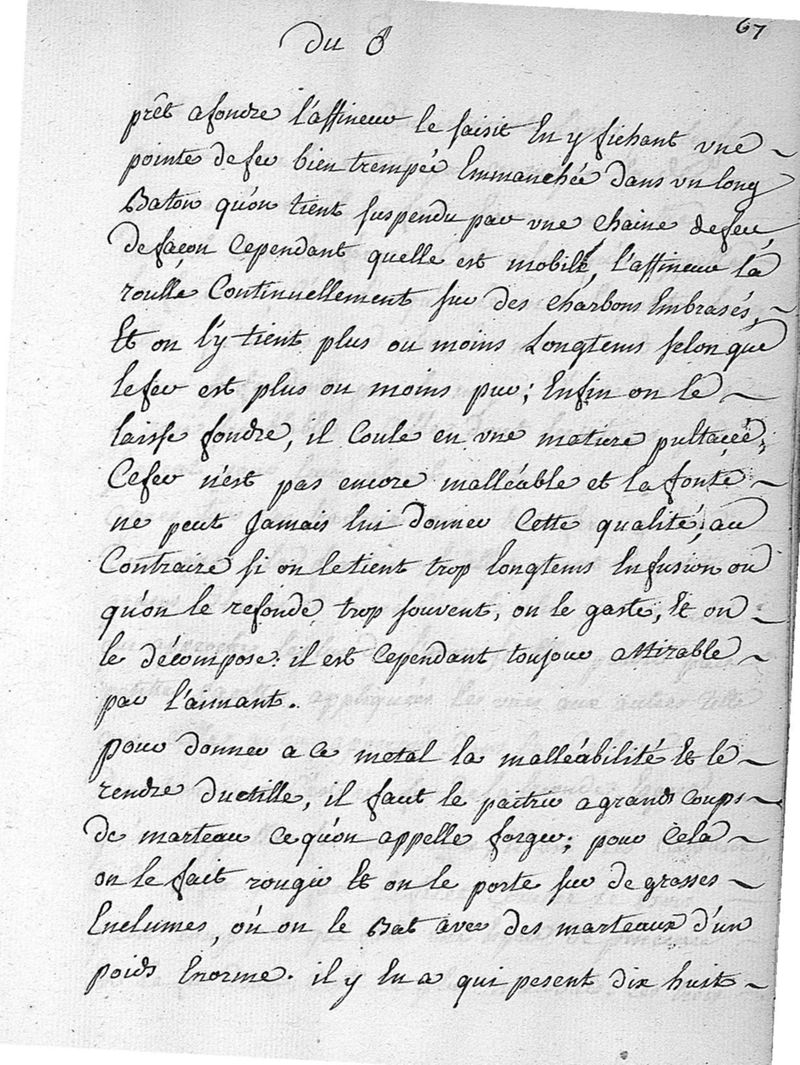 67
du ♂
prêt a fondre l'affineur le saisit En y fichant vne
pointe de fer bien trempée Emmanchée dans vn long
Baton qu'on tient suspendu par vne chaine de fer,
de façon Cependant quelle est mobile, l'affineur la
roulle Continuellement sur des charbons Embrasés,
Et on l'y tient plus ou moins Longtems selon que
le fer est plus ou moins pur; Enfin on le
laisse fondre, il Coule en vne matiere pultacée,
Ce fer n'est pas encore malléable et la fonte
ne peut Jamais lui donner Cette qualité, au
Contraire si on le tient trop longtems En fusion ou
qu'on le refonde trop souvent, on le gaste, Et on
le décompose. il est Cependant toujour attirable
par l'aimant.
pour donner a Ce metal la malléabilité Et le
rendre ductille, il faut le paitrir a grands Coups
de marteau Ce qu'on appelle forger; pour Cela
on le fait rougir Et on le porte sur de grosses
Enclumes, où on le Bat avec des marteaux d'un
poids Enorme. il y En a qui pesent dix huit